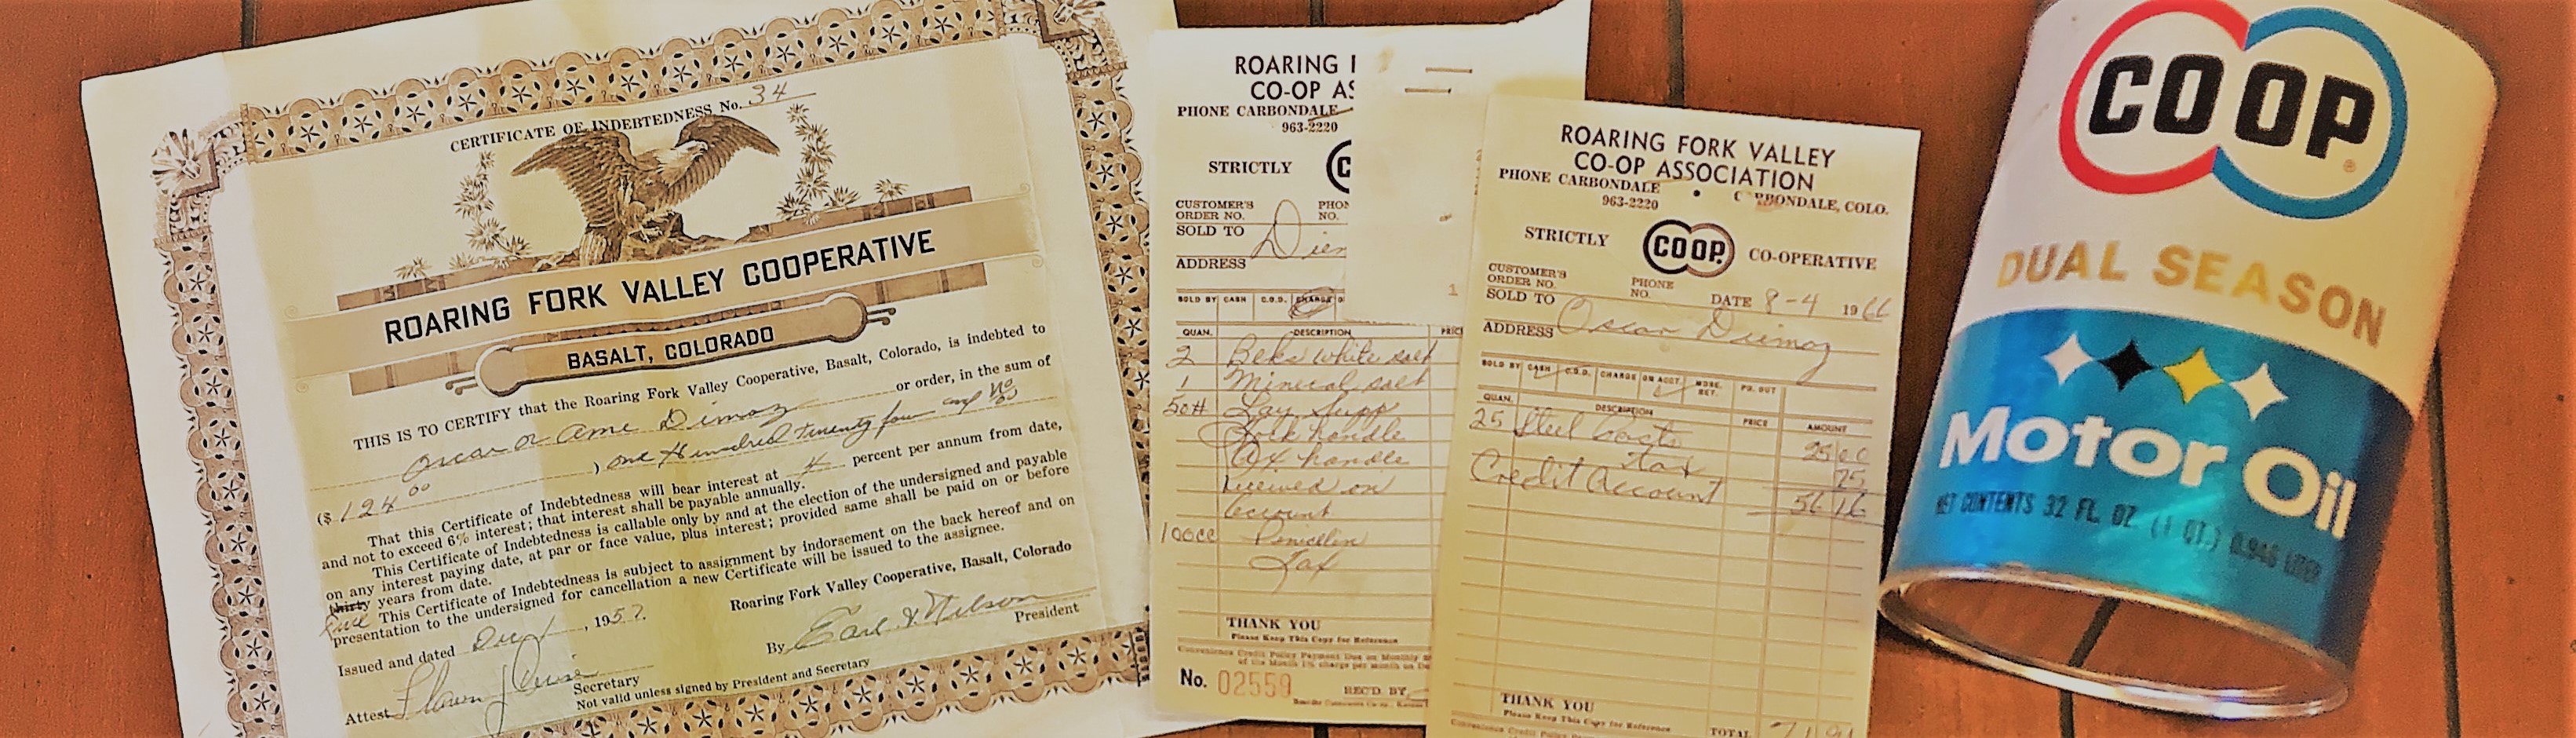 CERTIFICATE OF INDEBTEDNESS No. 34
ROARING FORK VALLEY COOPERATIVE
BASALT, COLORADO
THIS IS TO CERTIFY that the Roaring Fork Valley Cooperative, Basalt, Colorado, is indebted to
Oscar or Ame Dimoz or order, in the sum of
) One Hundred Twenty four and No/00
($ 124 00
That this Certificate of Indebtedness will bear interest at 4 percent per annum from date,
and not to exceed 6% interest; that interest shall be payable annually.
This Certificate of Indebtedness is callable only by and at the election of the undersigned and payable
on any interest paying date, at par or face value, plus interest; provided same shall be paid on or before
thirty years from date.
This Certificate of Indebtedness is subject to assignment by indorsement on the back hereof and on
presentation to the undersigned for cancellation a new Certificate will be issued to the assignee.
Issued and dated , 1957.
Roaring Fork Valley Cooperative, Basalt, Colorado
By Earl Nelson
President
Attest
Secretary
Not valid unless signed by President and Secretary
ROARING F
CO-OP AS
PHONE CARBONDALE
963-2220
STRICTLY C
CUSTOMER'S ORDER NO. PHON NO.
SOLD TO
ADDRESS
SOLD BY CASH C.O.D. CHARGE O
QUAN. DESCRIPTION PRICE
2 white salt
1 Mineral salt
50# Lay Supp
handle
handle
Received on
account
100cc Penicillin
Tax
THANK YOU
Please Keep This Copy for Reference
Convenience Credit Policy Payment Due on Monthly
of the Month 1% charge per month on
No. 02559 REC'D. BY
ROARING FORK VALLEY
CO-OP ASSOCIATION
PHONE CARBONDALE • CARBONDALE, COLO.
963-2220
STRICTLY COOP CO-OPERATIVE
CUSTOMER'S ORDER NO. PHONE NO. DATE 8-4 1966
SOLD TO Oscar Diemoz
ADDRESS
SOLD BY CASH C.O.D. CHARGE ON ACCT. MDSE. RET. PD. OUT
QUAN. DESCRIPTION PRICE AMOUNT
25 Steel Posts 25 00
Tax 75
Credit Account 56 16
THANK YOU
Please Keep This Copy for Reference
Convenience Credit Policy
TOTAL
COOP
DUAL SEASON
Motor Oil
NET CONTENTS 32 FL. OZ. (1 QT.) 0.946 LITER